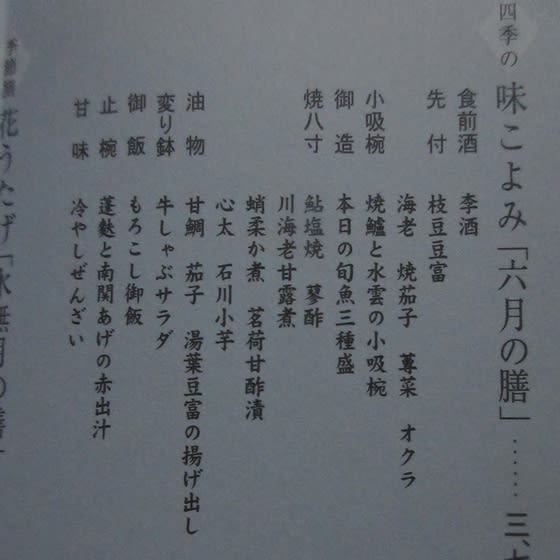 四季の 味こよみ「六月の膳」…… 三、七
食前酒 李酒
先付 枝豆豆富
海老 焼茄子 蓴菜 オクラ
小吸椀 焼鱸と水雲の小吸椀
御造 本日の旬魚三種盛
焼八寸 鮎塩焼 蓼酢
川海老甘露煮
蛸柔か煮 茗荷甘酢漬
心太 石川小芋
油物 甘鯛 茄子 湯葉豆富の揚げ出し
変り鉢 牛しゃぶサラダ
御飯 もろこし御飯
止椀 蓬麩と南関あげの赤出汁
甘味 冷やしぜんざい
花うたげ「水無月の膳」